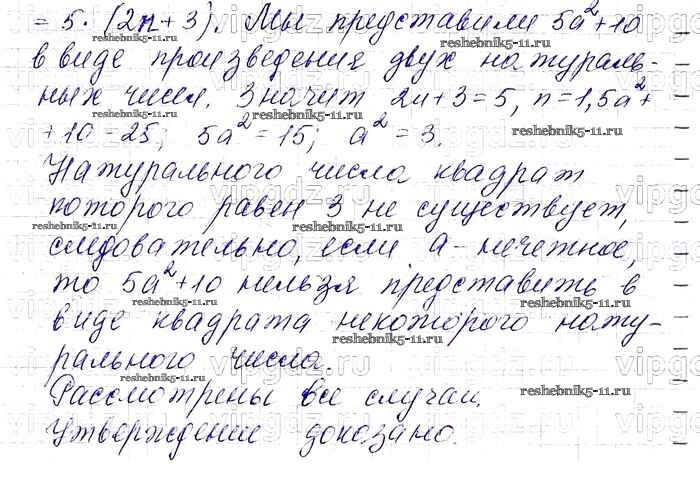 = 5·(2n+3). Мы представили 5a²+10
в виде произведения двух натураль-
ных чисел. Значит 2n+3=5, n=1, 5a²+
+10=25; 5a²=15; a²=3.
Натурального числа квадрат
которого равен 3 не существует,
следовательно, если a - нечетное,
то 5a²+10 нельзя представить в
виде квадрата некоторого нату-
рального числа.
Рассмотрены все случаи.
Утверждение доказано.
reshebnik5-11.ru
reshebnik5-11.ru
reshebnik5-11.ru
reshebnik5-11.ru
reshebnik5-11.ru
reshebnik5-11.ru
reshebnik5-11.ru
reshebnik5-11.ru
reshebnik5-11.ru
reshebnik5-11.ru
reshebnik5-11.ru
vipgdz.ru